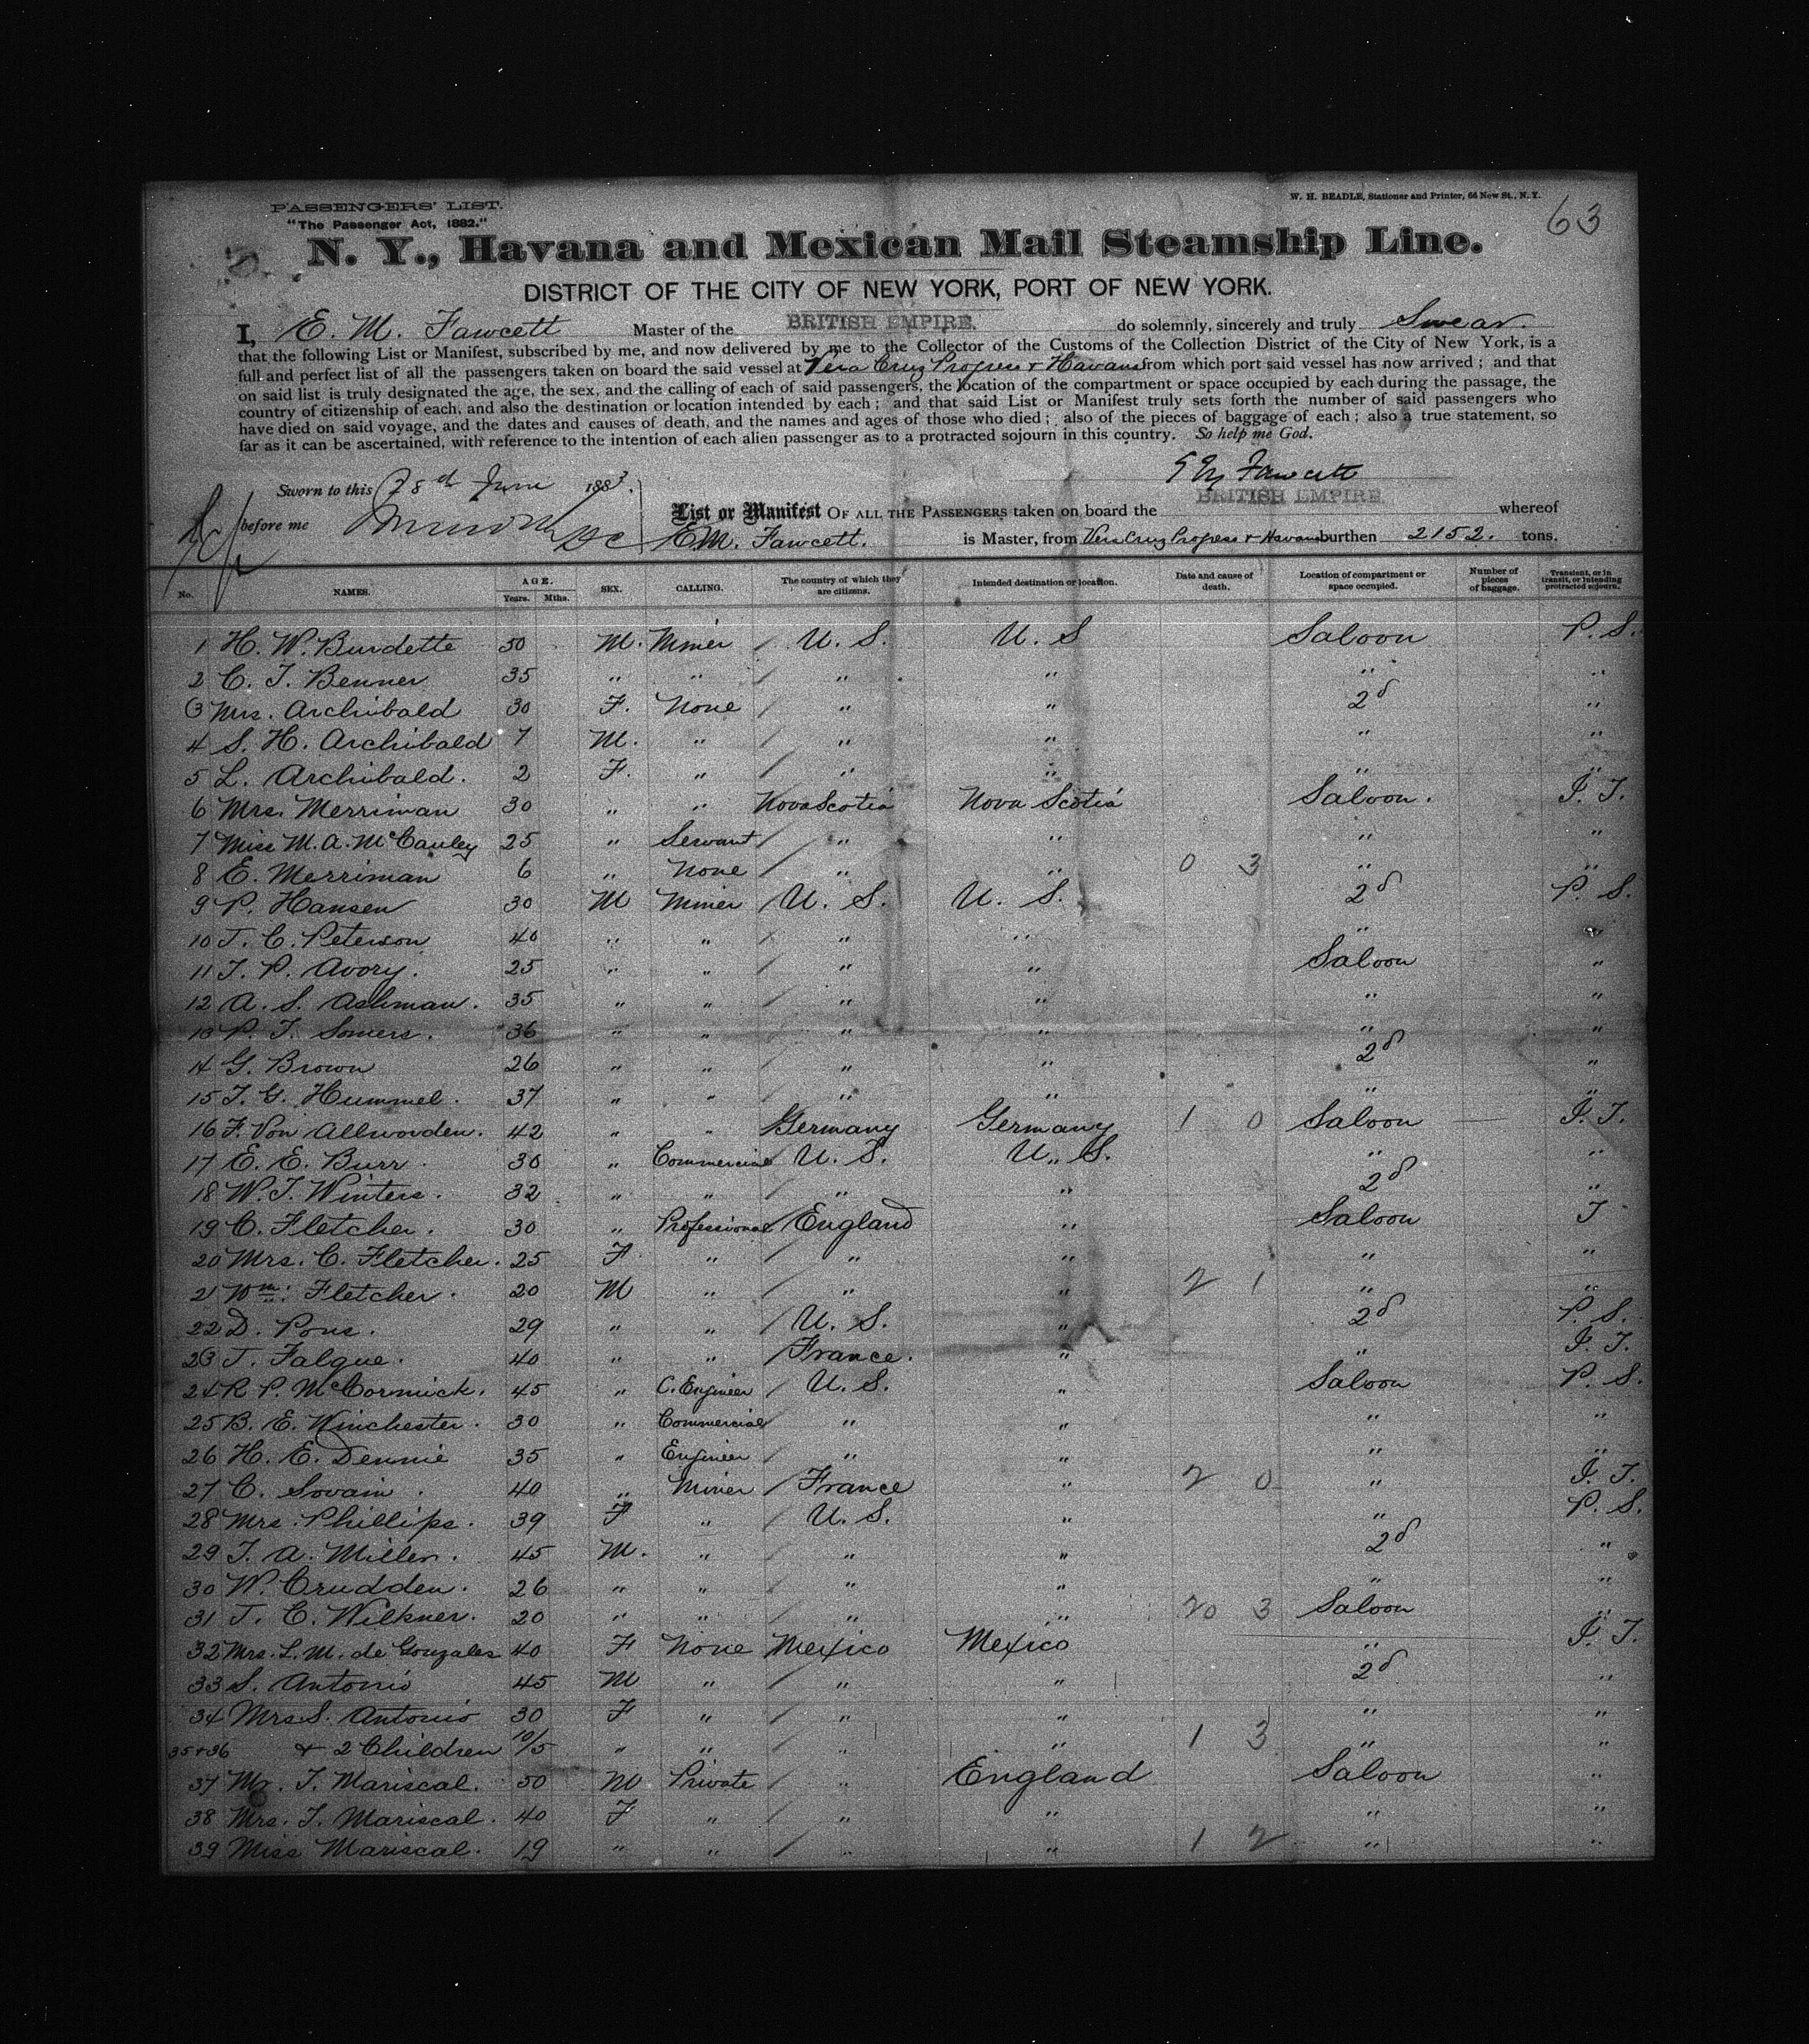 PASSENGERS' LIST.
"The Passenger Act, 1882."
W. H. BEADLE, Stationer and Printer, 66 New St., N. Y.
63
N. Y., Havana and Mexican Mail Steamship Line.
DISTRICT OF THE CITY OF NEW YORK, PORT OF NEW YORK.
I, E. M. Fawcett Master of the BRITISH EMPIRE. do solemnly, sincerely and truly Swear.
that the following List or Manifest, subscribed by me, and now delivered by me to the Collector of the Customs of the Collection District of the City of New York, is a
full and perfect list of all the passengers taken on board the said vessel at Vera Cruz Progreso & Havana from which port said vessel has now arrived; and that
on said list is truly designated the age, the sex, and the calling of each of said passengers, the location of the compartment or space occupied by each during the passage, the
country of citizenship of each, and also the destination or location intended by each; and that said List or Manifest truly sets forth the number of said passengers who
have died on said voyage, and the dates and causes of death, and the names and ages of those who died; also of the pieces of baggage of each; also a true statement, so
far as it can be ascertained, with reference to the intention of each alien passenger as to a protracted sojourn in this country. So help me God.
E M Fawcett
Sworn to this 28th June 1883.
before me
List or Manifest OF ALL THE PASSENGERS taken on board the BRITISH EMPIRE whereof
E.M. Fawcett. is Master, from Vera Cruz Progreso & Havana burthen 2152. tons.
No. NAMES. AGE. Years. Mths. SEX. CALLING. The country of which they are citizens. Intended destination or location. Date and cause of death. Location of compartment or space occupied. Number of pieces of baggage. Transient, or in transit, or intending protracted sojourn.
1 H. W. Burdette 50 M. Miner / U. S. U. S Saloon P. S.
2 C. T. Benner 35 " " / " " " "
3 Mrs. Archibald 30 F. None / " " 2d "
4 S. H. Archibald 7 M. " / " " " "
5 L. Archibald. 2 F. " / " " " "
6 Mrs. Merriman 30 " " Nova Scotia Nova Scotia Saloon. I. T.
7 Miss M. A. McCauley 25 " Servant / " " " "
8 E. Merriman 6 " None / " " 0 3 " "
9 P. Hansen 30 M Miner / U. S. U. S. 2d P. S.
10 J. C. Peterson 40 " " / " " " "
11 T. P. Avory. 25 " " / " " Saloon "
12 A. S. Ashman. 35 " " / " " " "
13 P. T. Somers. 36 " " / " " " "
14 G. Brown 26 " " / " " 2d "
15 T. G. Hummel. 37 " " / " " " "
16 F. Von Allworden. 42 " " Germany Germany 1 0 Saloon I. T.
17 E. E. Burr. 30 " Commercial / U. S. U. S. " "
18 W. T. Winters. 32 " " / " " 2d "
19 C. Fletcher. 30 " Professional / England " Saloon T
20 Mrs. C. Fletcher. 25 F " / " " " "
21 Wm: Fletcher. 20 M " / " " 2 1 " "
22 D. Pons. 29 " " / U. S. " 2d P. S.
23 J. Falque. 40 " " / France. " " I. T.
24 R P. McCormick. 45 " C. Engineer / U. S. " Saloon P. S.
25 B. E. Winchester. 30 " Commercial / " " " "
26 H. E. Dennie 35 " Engineer / " " " "
27 C. Sovain. 40 " Miner / France " 2 0 " I. T.
28 Mrs. Phillips. 39 F " / U. S. " " P. S.
29 T. A. Miller. 45 M. " / " " 2d "
30 W. Crudden. 26 " " / " " " "
31 J. C. Wilkner. 20 " " / " " 20 3 Saloon "
32 Mrs. L. M. de Gonzales 40 F None Mexico Mexico " I. T.
33 S. Antonio 45 M " / " " 2d "
34 Mrs S. Antonio 30 F " / " " " "
35+36 & 2 Children 10/5 " " / " " 1 3 " "
37 Mr. T. Mariscal. 50 M Private / " England Saloon "
38 Mrs. T. Mariscal. 40 F " / " " " "
39 Miss Mariscal. 19 " " / " " 1 2 " "